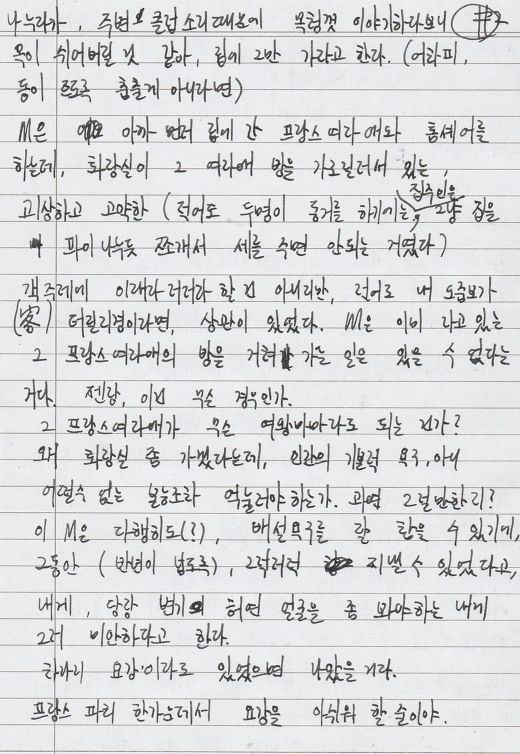 나누다가, 주변의 클럽 소리 때문에 목청껏 이야기하다보니 #2
목이 쉬어버릴 것 같아, 립에 그만 가라고 한다. (어차피,
동이 트도록 춤출게 아니라면)
M은 아까 먼저 립에 간 프랑스 여자애와 룸셰어를
하는데, 화장실이 그 여자애 방을 가로질러서 있는,
괴상하고 고약한 (적어도 두명이 동거를 하기에는, 집주인은 그냥 집을
파이 나누듯 쪼개서 세를 주면 안되는 거였다)
객 주제에 이래라 저래라 할 건 아니지만, 적어도 내
(客) 이라면, 상관이 있었다. M은 이미 자고 있는
그 프랑스여자애의 방을 거쳐 가는 일은 있을 수 없다는
거다. 젠장, 이건 무슨 경우인가.
그 프랑스여자애가 무슨 여왕마마라도 되는 건가?
왜 화장실 좀 가겠다는데, 인간의 기본적 욕구, 아니
어쩔수 없는 본능조차 억눌러야하는가. 과연 그럴만한지?
이 M은 다행히도(!?), 배설욕구를 잘 참을 수 있기에,
그동안 (반년이 넘도록), 그럭저럭 지낼 수 있었다고,
내게, 당장 변기의 허연 얼굴을 좀 봐야하는 내게
그저 미안하다고 한다.
하다니 요강이라도 있었으면 나았을거다.
프랑스 파리 한가운데서 요강을 아쉬워 할 줄이야.